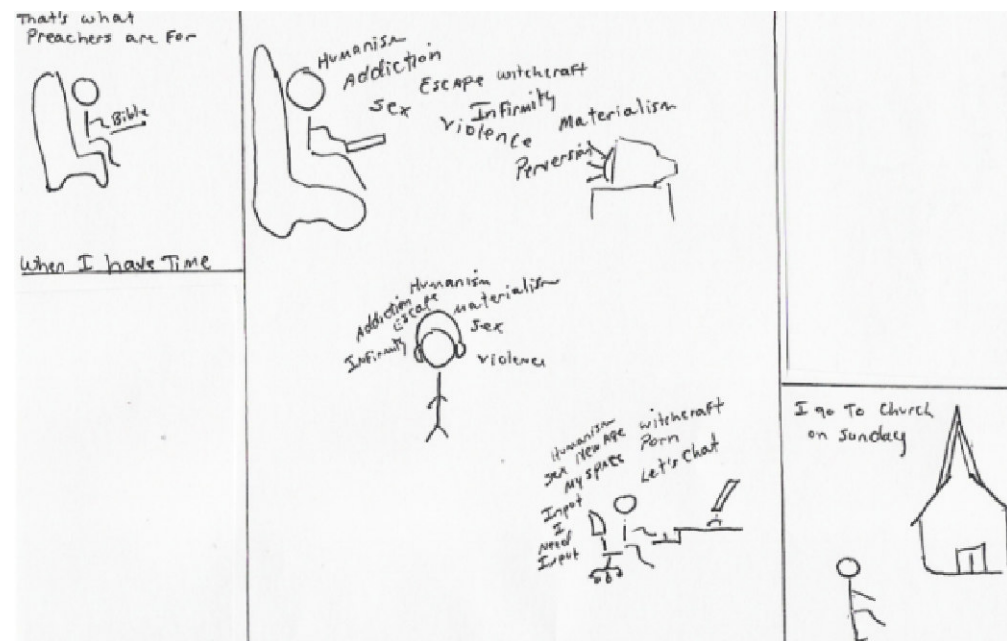 That's what
Preachers are For
Bible
When I have Time
Humanism
Addiction
Sex
Escape witchcraft
Infirmity
Violence
Materialism
Perversion
Humanism
Addiction
Escape
Materialism
Sex
Infirmity
violence
Humanism
Sex New Age witchcraft
My space Porn
Let's Chat
Input
I
Need
Input
I go To Church
on Sunday